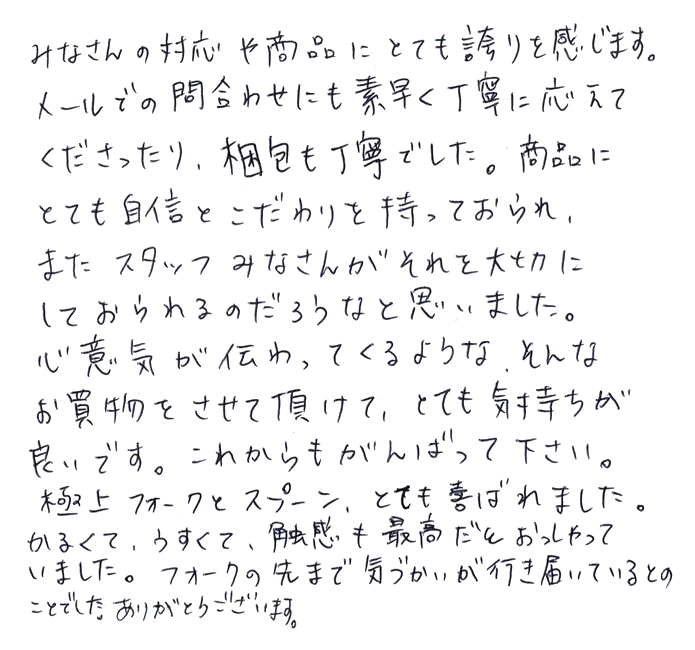 みなさんの対応や商品にとても誇りを感じます。
メールでの問合わせにも素早く丁寧に応えて
くださったり、梱包も丁寧でした。商品に
とても自信とこだわりを持っておられ、
また スタッフ みなさんがそれを大切に
しておられるのだろうなと思いました。
心意気が伝わってくるような、そんな
お買物をさせて頂けて、とても気持ちが
良いです。これからもがんばって下さい。
極上フォークとスプーン、とても喜ばれました。
かるくて、うすくて、触感も最高だとおっしゃって
いました。フォークの先まで気づかいが行き届いているとの
ことでした。ありがとうございます。